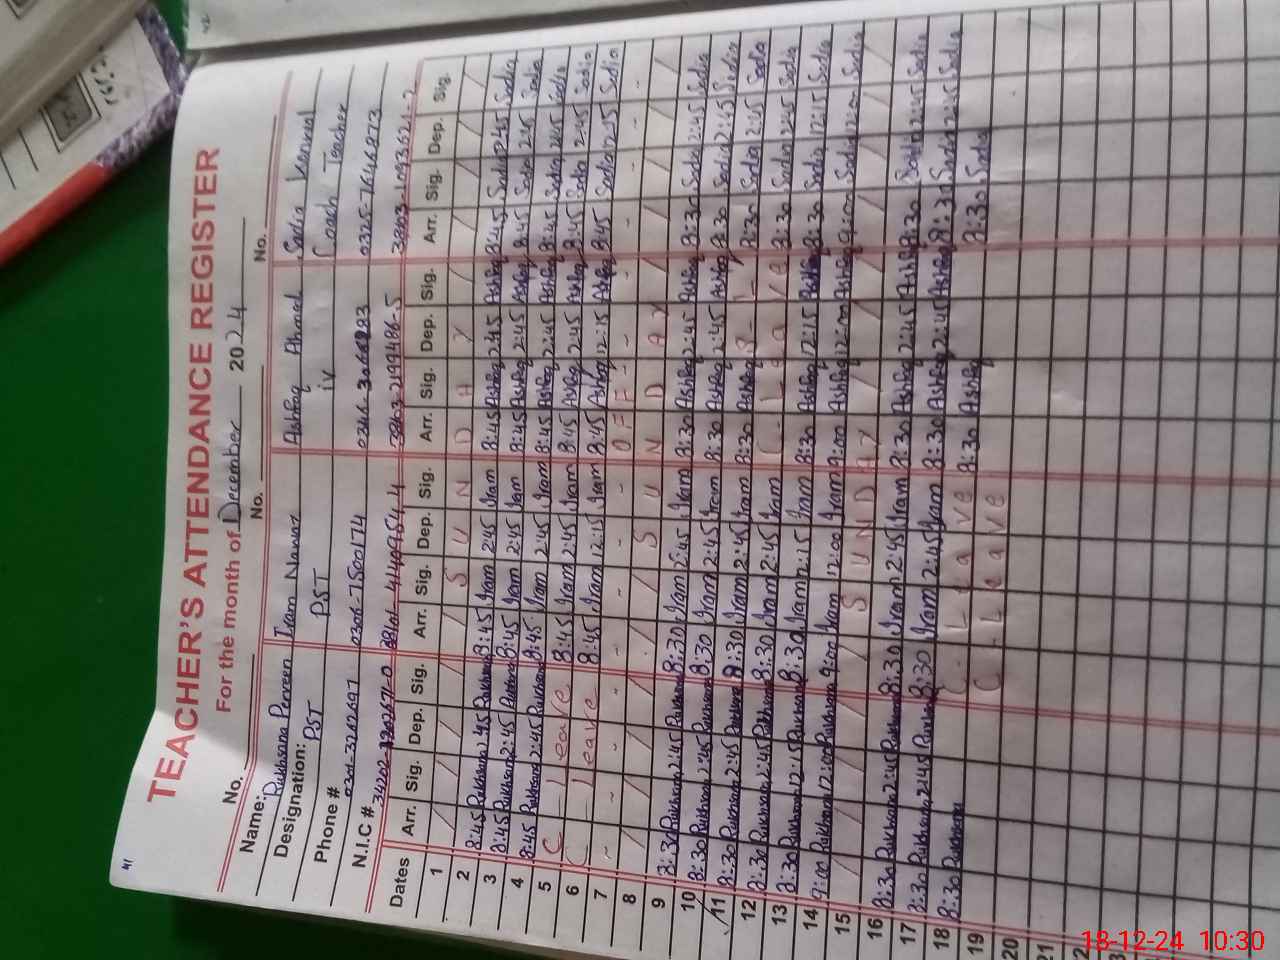 TEACHER'S ATTENDANCE REGISTER
For the month of December 2024
No. No. No. No.
Name: Rukhsana Perveen Iram Nawaz Ashfaq Ahmed Sadia Kanwal
Designation: PST PST iv Coach Teacher
Phone # 0306-7500174 0325-7646273
N.I.C #
Dates Arr. Sig. Dep. Sig. Arr. Sig. Dep. Sig. Arr. Sig. Dep. Sig. Arr. Sig. Dep. Sig.
1 S U N D A Y
2 8:45 Rukhsana 2:45 Rukhsana 8:45 Iram 2:45 Iram 8:45 Ashfaq 2:45 Ashfaq 8:45 Sadia 2:45 Sadia
3 8:45 Rukhsana 2:45 Rukhsana 8:45 Iram 2:45 Iram 8:45 Ashfaq 2:45 Ashfaq 8:45 Sadia 2:45 Sadia
4 8:45 Rukhsana 2:45 Rukhsana 8:45 Iram 2:45 Iram 8:45 Ashfaq 2:45 Ashfaq 8:45 Sadia 2:45 Sadia
5 C - leave 8:45 Iram 2:45 Iram 8:45 Ashfaq 2:45 Ashfaq 8:45 Sadia 2:45 Sadia
6 C leave 8:45 Iram 12:15 Iram 8:45 Ashfaq 12:15 Ashfaq 8:45 Sadia 12:15 Sadia
7 O F F
8 S U N D A Y
9 8:30 Rukhsana 2:45 Rukhsana 8:30 Iram 2:45 Iram 8:30 Ashfaq 2:45 Ashfaq 8:30 Sadia 2:45 Sadia
10 8:30 Rukhsana 2:45 Rukhsana 8:30 Iram 2:45 Iram 8:30 Ashfaq 2:45 Ashfaq 8:30 Sadia 2:45 Sadia
11 8:30 Rukhsana 2:45 Rukhsana 8:30 Iram 2:45 Iram 8:30 Ashfaq 8:30 Sadia 2:45 Sadia
12 8:30 Rukhsana 2:45 Rukhsana 8:30 Iram 2:45 Iram C - Leave 8:30 Sadia 2:45 Sadia
13 8:30 Rukhsana 12:15 Rukhsana 8:30 Iram 12:15 Iram 8:30 Ashfaq 12:15 Ashfaq 8:30 Sadia 12:15 Sadia
14 9:00 Rukhsana 12:00 Rukhsana 9:00 Iram 12:00 Iram 9:00 Ashfaq 12:00 Ashfaq 9:00 Sadia 12:00 Sadia
15 S U N D A Y
16 8:30 Rukhsana 2:45 Rukhsana 8:30 Iram 2:45 Iram 8:30 Ashfaq 2:45 Ashfaq 8:30 Sadia 2:45 Sadia
17 8:30 Rukhsana 2:45 Rukhsana 8:30 Iram 2:45 Iram 8:30 Ashfaq 2:45 Ashfaq 8:30 Sadia 2:45 Sadia
18 8:30 Rukhsana C - Leave 8:30 Ashfaq 8:30 Sadia
19 C - Leave
20
21
18-12-24 10:30